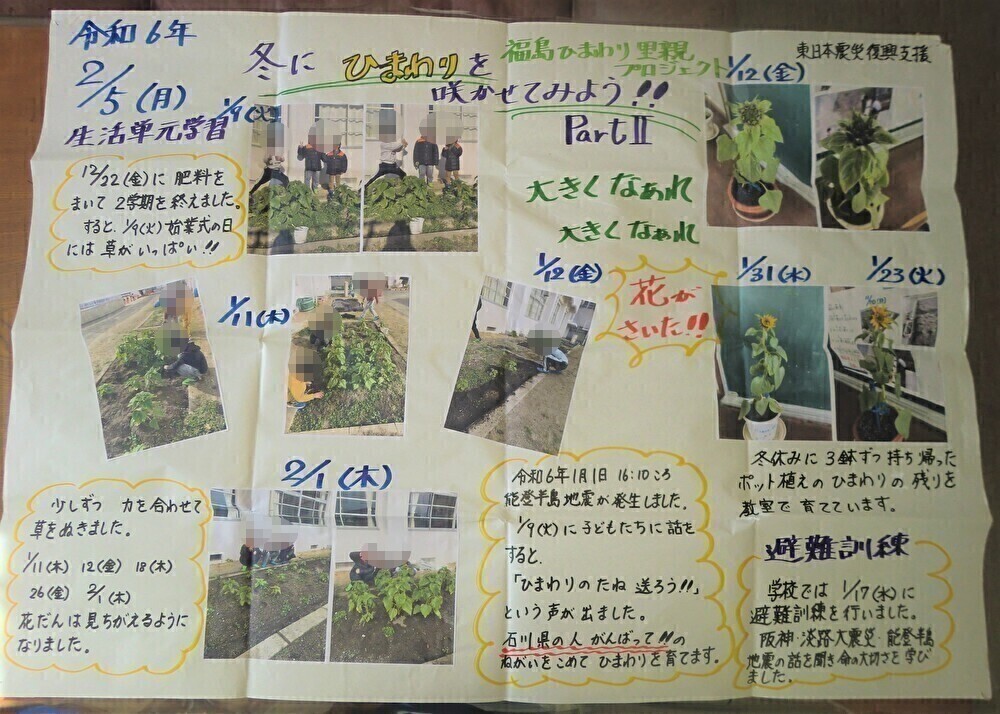 令和6年
2/5(月)
生活単元学習
冬に ひまわりを
咲かせてみよう!!
Part Ⅱ
福島ひまわり里親
プロジェクト
東日本震災復興支援
12/22(金)に 肥料を
まいて 2学期を 終えました。
すると、1/9(火)始業式の日
には 草が いっぱい!!
1/9(火)
大きくなあれ
大きくなあれ
1/12(金)
1/11(木)
1/12(金)
花が
さいた!!
1/31(水)
1/23(火)
少しずつ 力を合わせて
草をぬきました。
1/11(木) 12(金) 18(木)
26(金) 2/1(木)
花だんは見ちがえるように
なりました。
2/1(木)
令和6年1月1日 16:10ころ
能登半島地震が発生しました。
1/9(火)に子どもたちに 話を
すると、
「ひまわりのたね 送ろう!!」
という声が 出ました。
石川県の人 がんばって!!の
ねがいをこめて ひまわりを育てます。
冬休みに 3鉢ずつ 持ち帰った
ポット植えのひまわりの 残りを
教室で 育てています。
避難訓練
学校では 1/17(水)に
避難訓練を行いました。
阪神・淡路大震災・能登半島
地震の話を聞き 命の大切さを 学び
ました。